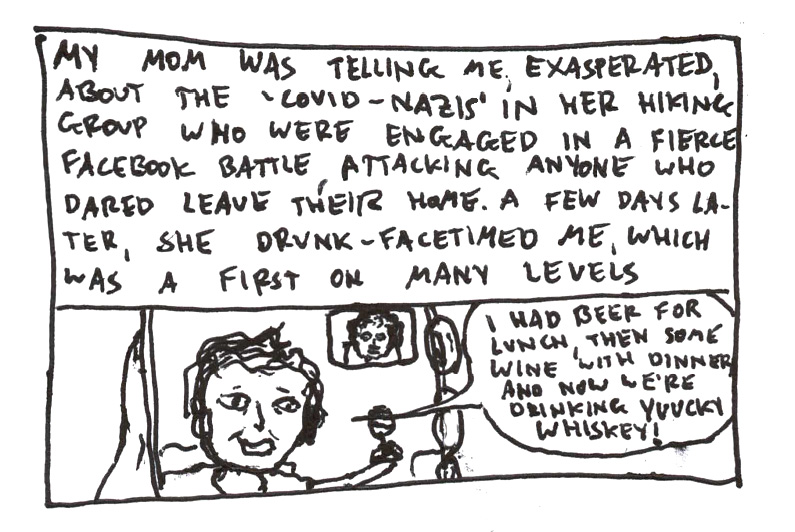 MY MOM WAS TELLING ME, EXASPERATED,
ABOUT THE 'COVID-NAZIS' IN HER HIKING
GROUP WHO WERE ENGAGED IN A FIERCE
FACEBOOK BATTLE, ATTACKING ANYONE WHO
DARED LEAVE THEIR HOME. A FEW DAYS LA-
TER, SHE DRUNK-FACETIMED ME, WHICH
WAS A FIRST ON MANY LEVELS
I HAD BEER FOR
LUNCH, THEN SOME
WINE WITH DINNER
AND NOW WE'RE
DRINKING YUUCKY
WHISKEY!